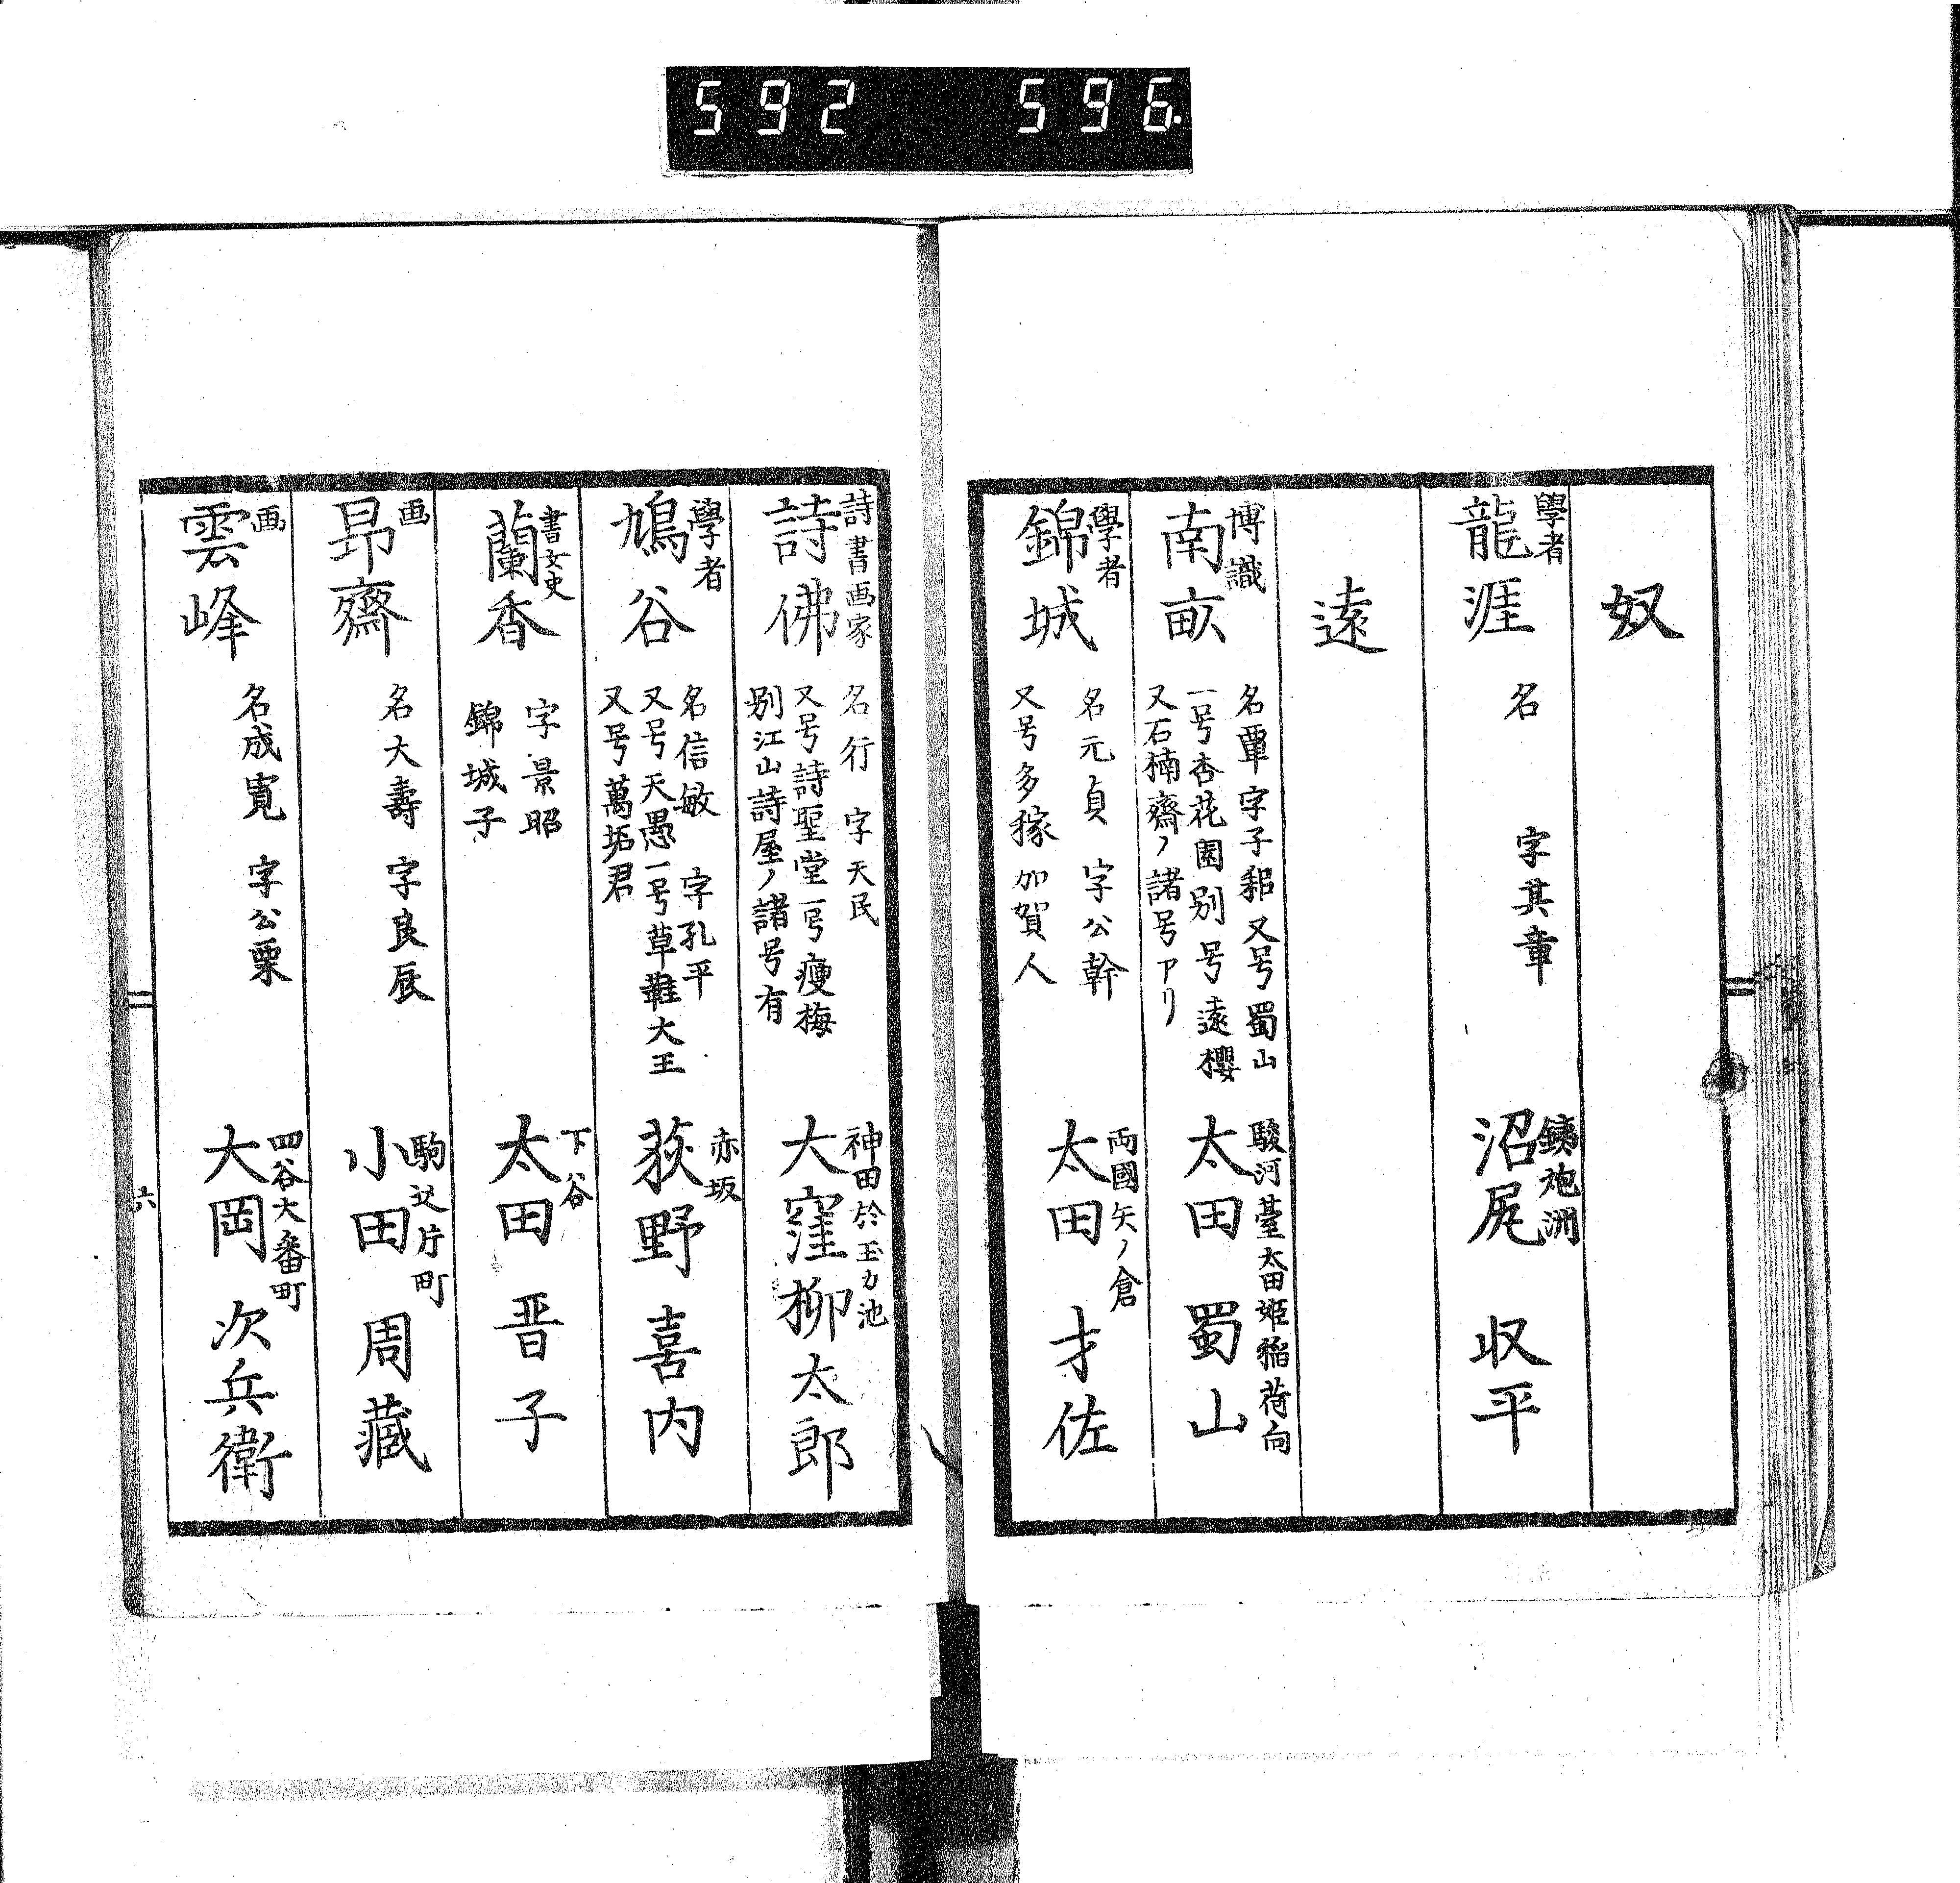 592 596.
奴
學者
龍涯 名 字其章 鉄炮洲 沼尻 収平
遠
博識
南畝
名覃字子耜又号蜀山
一号杏花園別号遠櫻
又石楠齋ノ諸号アリ
駿河臺太田姫稲荷向
太田 蜀山
學者
錦城
名元貞 字公幹
又号多稼 加賀人
両國矢ノ倉
太田 才佐
詩書画家
詩佛
名行 字天民
又号詩聖堂一号瘦梅
別江山詩屋ノ諸号有
神田於玉力池
大窪柳太郎
學者
鳩谷
名信敏 字孔平
又号天愚一号草鞋大王
又号萬垢君
赤坂
荻野喜内
書女史
蘭香
字景昭
錦城子
下谷
太田晋子
画
昂齋
名大壽 字良辰
駒込片町
小田周藏
画
雲峰
名成寛 字公栗
四谷大番町
大岡次兵衛
六